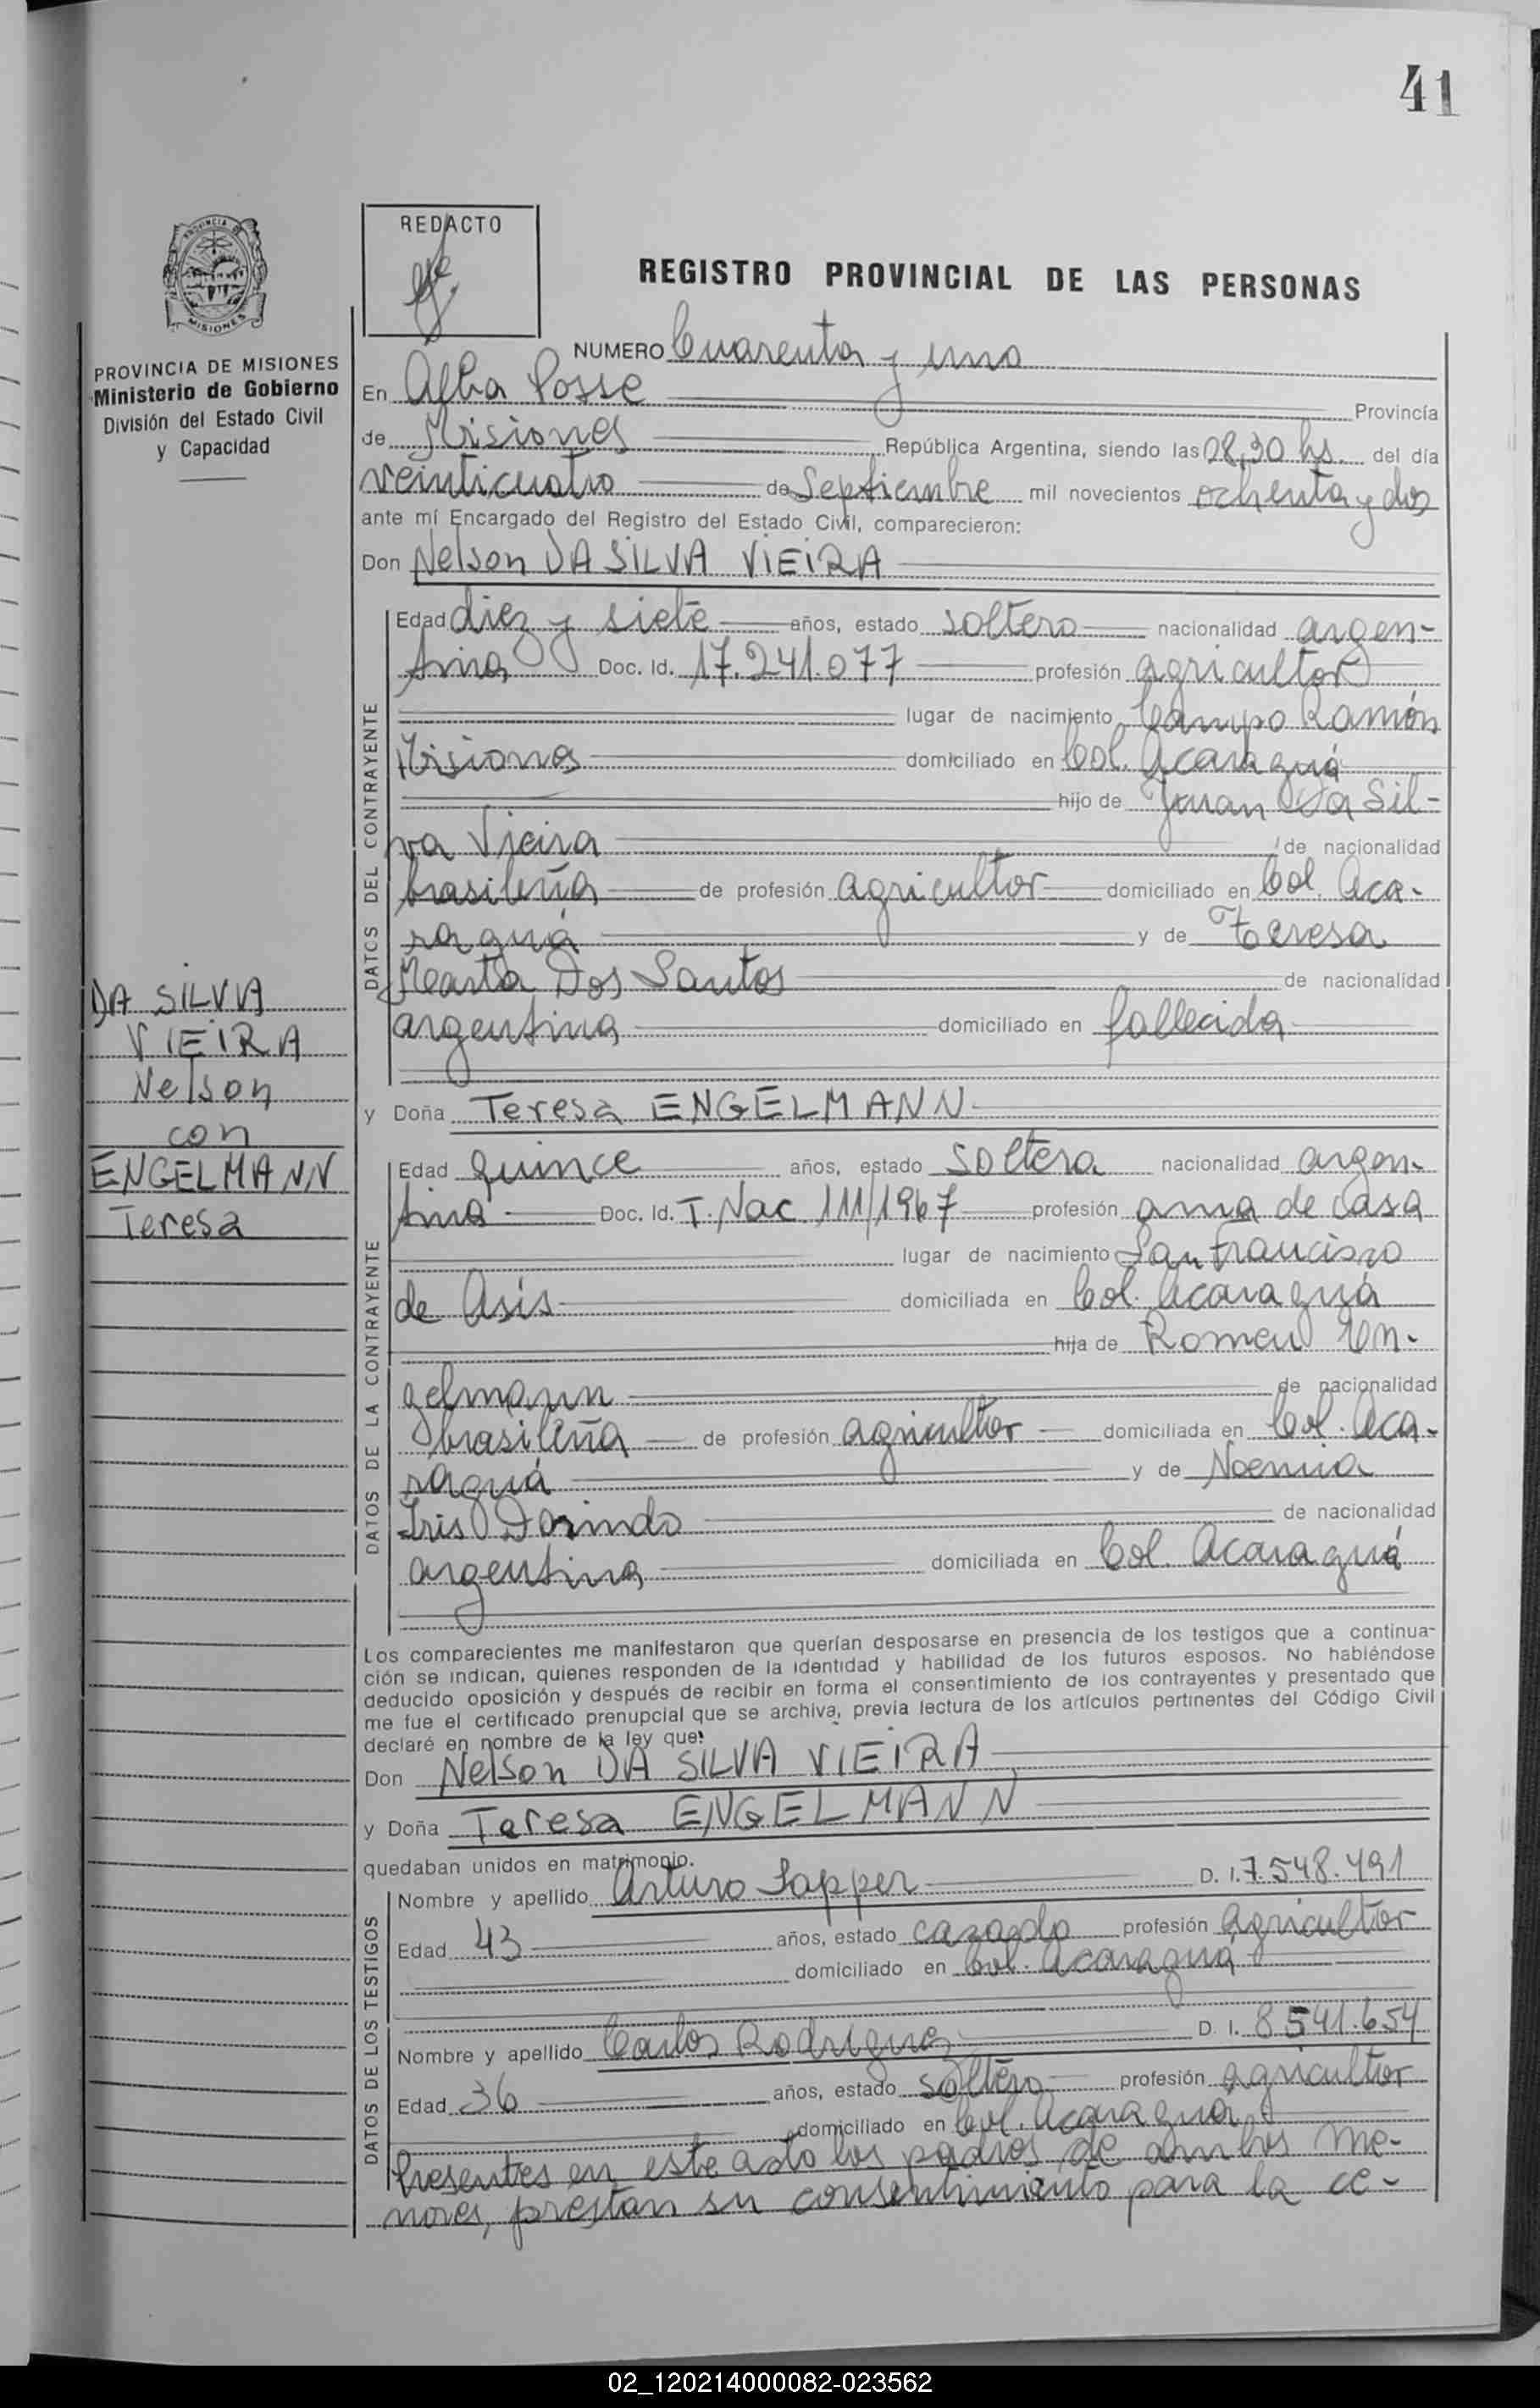 41
PROVINCIA DE
MISIONES
PROVINCIA DE MISIONES
Ministerio de Gobierno
División del Estado Civil
y Capacidad
REDACTO
REGISTRO PROVINCIAL DE LAS PERSONAS
NUMERO Cuarenta y uno
En Alba Posse Provincia
de Misiones República Argentina, siendo las 08,30 hs. del día
veinticuatro de Septiembre mil novecientos ochenta y dos
ante mí Encargado del Registro del Estado Civil, comparecieron:
Don Nelson DA SILVA VIEIRA
DATOS DEL CONTRAYENTE
Edad diez y siete años, estado soltero nacionalidad argen-
tina Doc. Id. 17.241.077 profesión agricultor
lugar de nacimiento Campo Ramón
Misiones domiciliado en Col. Acaraguá
hijo de Juan Da Sil-
va Vieira de nacionalidad
brasileña de profesión agricultor domiciliado en Col. Aca-
raguá y de Teresa
Marta Dos Santos de nacionalidad
argentina domiciliado en fallecida
DA SILVA
VIEIRA
Nelson
con
ENGELMANN
Teresa
y Doña Teresa ENGELMANN
DATOS DE LA CONTRAYENTE
Edad quince años, estado soltera nacionalidad argen-
tina Doc. Id. T. Nac. 111/1967 profesión ama de casa
lugar de nacimiento San Francisco
de Asís domiciliada en Col. Acaraguá
hija de Romeu En-
gelmann de nacionalidad
brasileña de profesión agricultor domiciliada en Col. Aca-
raguá y de Noemia
Iris Dorindo de nacionalidad
argentina domiciliada en Col. Acaraguá
Los comparecientes me manifestaron que querían desposarse en presencia de los testigos que a continua-
ción se indican, quienes responden de la identidad y habilidad de los futuros esposos. No habiéndose
deducido oposición y después de recibir en forma el consentimiento de los contrayentes y presentado que
me fue el certificado prenupcial que se archiva, previa lectura de los artículos pertinentes del Código Civil
declaré en nombre de la ley que:
Don Nelson DA SILVA VIEIRA
y Doña Teresa ENGELMANN
quedaban unidos en matrimonio.
DATOS DE LOS TESTIGOS
Nombre y apellido Arturo Sapper D. I. 7.548.491
Edad 43 años, estado casado profesión agricultor
domiciliado en Col. Acaraguá
Nombre y apellido Carlos Rodriguez D. I. 8541.654
Edad 36 años, estado soltero profesión agricultor
domiciliado en Col. Acaraguá
Presentes en este acto los padres de ambos me-
nores, prestan su consentimiento para la ce-
02_120214000082-023562